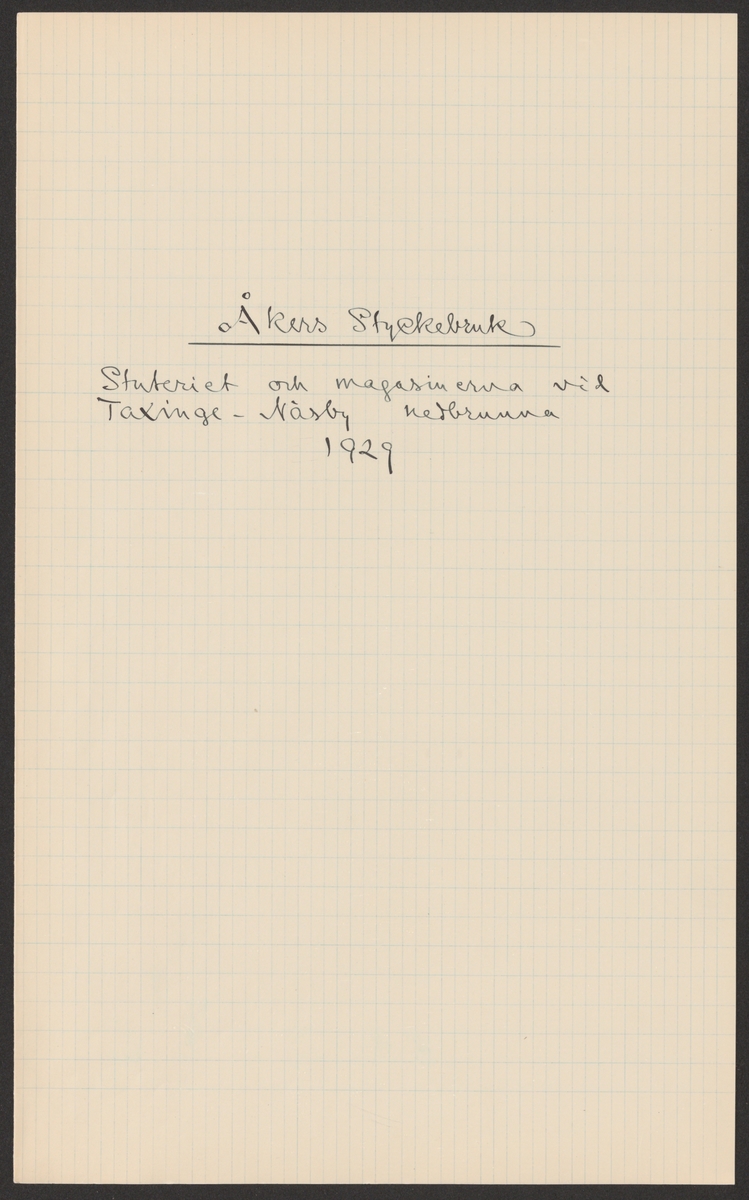 Åkers Styckebruk
Stuteriet och magasinerna vid
Taxinge - Näsby nedbrunna
1929